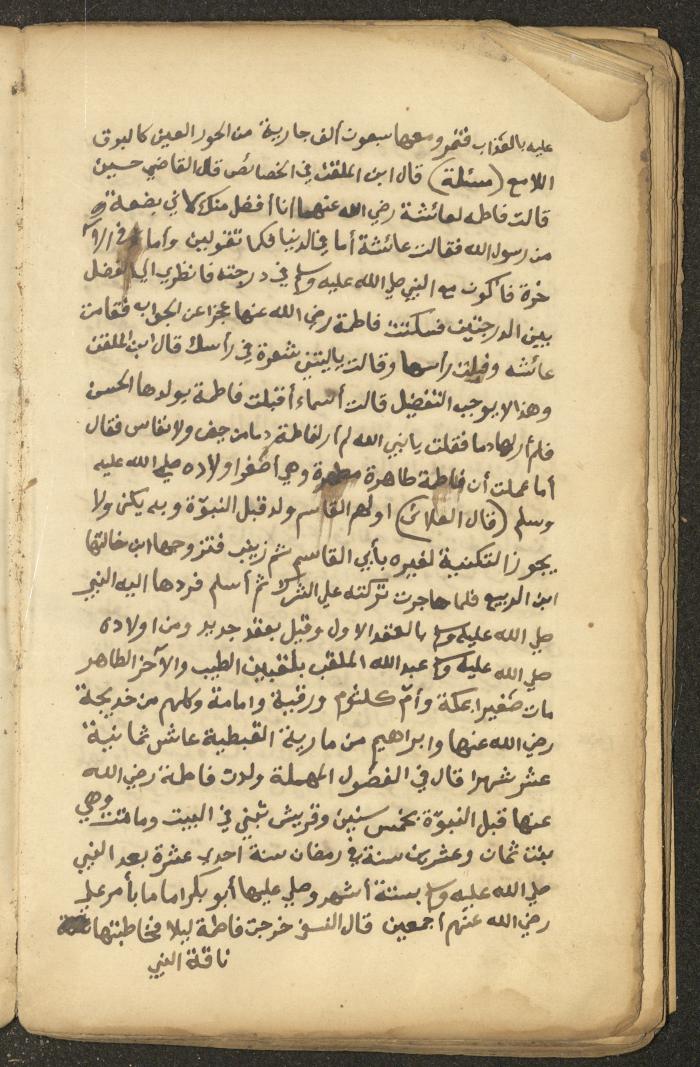 عليه بالعذاب فتمر ومعها سبعون ألف جارية من الحور العين كالبرق
اللامع (مسئلة) قال ابن الملقن في الخصائص قال القاضي حسين
قالت فاطمه لعائشة رضي الله عنهما انا أفضل منك لاني بضعة
من رسول الله فقالت عائشة أما في الدنيا فكما تقولين وأما في الآ
خرة فاكون مع النبي صلي الله عليه وسلم في درجته فانظري الي الفضل
بين الدرجتين فسكتت فاطمة رضي الله عنها عجزا عن الجواب فقامت
عائشه وقبلت رأسها وقالت ياليتني شعرة في رأسك قال ابن الملقن
وهذا لا يوجب التفضيل قالت أسماء أقبلت فاطمة بولدها الحسن
فلم أر لها دما فقلت يا نبي الله لم أر لفاطمة دما من حيض ولا نفاس فقال
أما علمت أن فاطمة طاهرة مطهرة وهي أصغر اولاده صلي الله عليه
وسلم (قال العلائي) اولهم القاسم ولد قبل النبوّة وبه يكنى ولا
يجوز التكنية لغيره بأبي القاسم ثم زينب فتزوجها ابن خالتها
ابن الربيع فلما هاجرت تركته علي الشرك ثم أسلم فردها اليه النبي
صلي الله عليه وسلم بالعقد الاول وقيل بعقد جديد ومن اولاده
صلي الله عليه وسلم عبد الله الملقب بلقبين الطيب والآخر الطاهر
مات صغيرا بمكة وأمّ كلثوم ورقية وامامة وكلهم من خديجة
رضي الله عنها وابراهيم من مارية القبطية عاش ثمانية
عشر شهرا قال في الفصول المهملة ولدت فاطمة رضي الله
عنها قبل النبوّة بخمس سنين وقريش تبني في البيت وماتت وهي
بنت ثمان وعشرين سنة في رمضان سنة احدى عشرة بعد النبي
صلي الله عليه وسلم بستة أشهر وصلي عليها أبو بكر اماما بأمر علي
رضي الله عنهم أجمعين قال النسفي خرجت فاطمة ليلا فخاطبتها
ناقة النبي